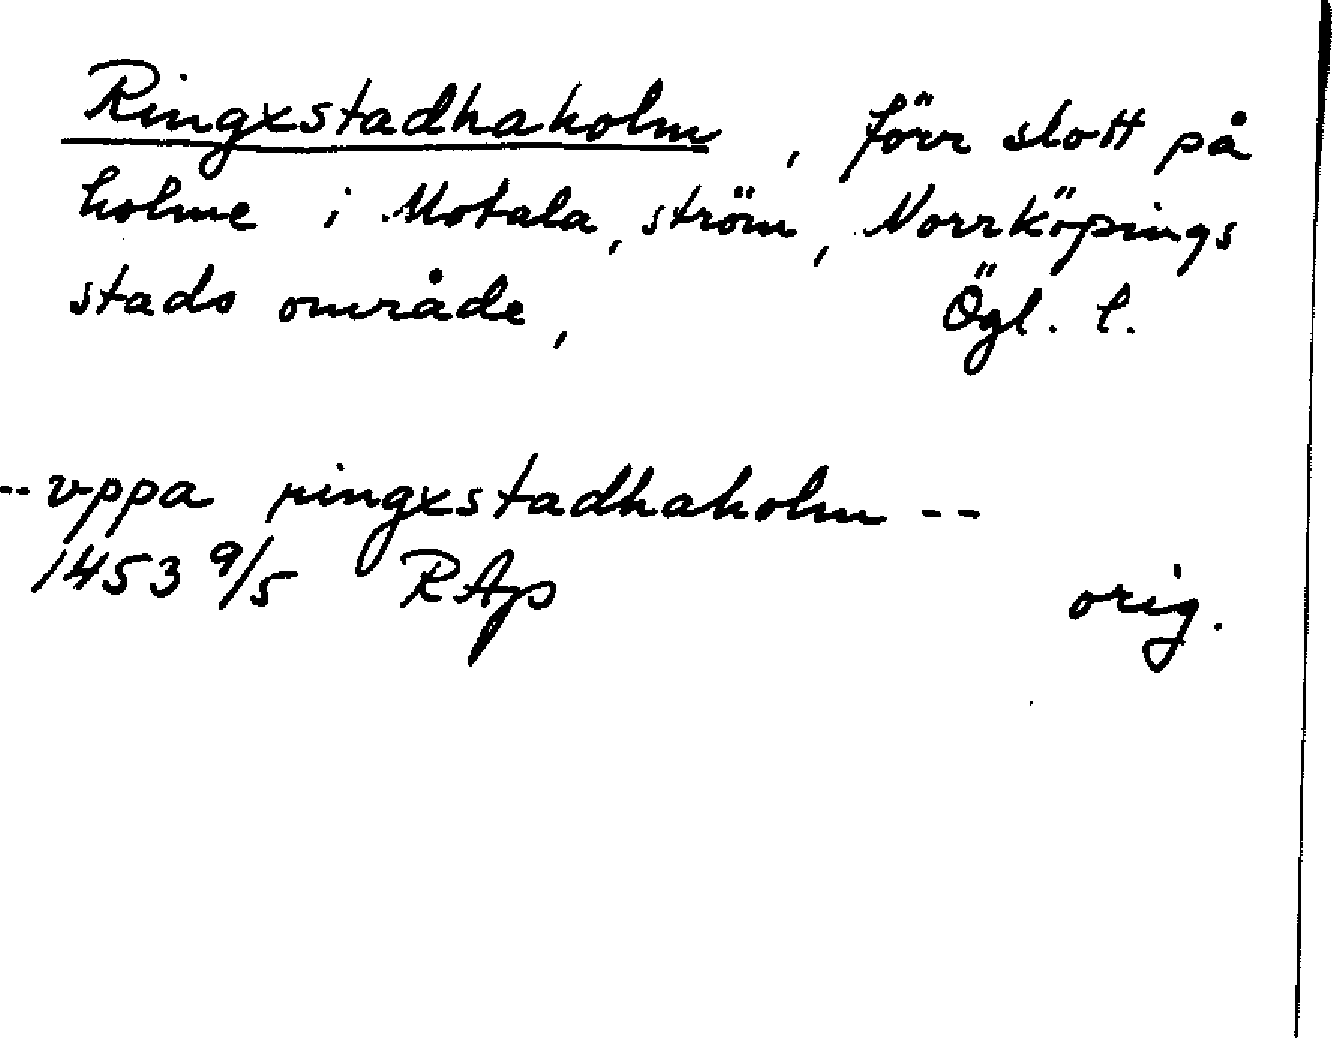 Ringxstadhaholm, förr slott på
holme i Motala, ström, Norrköpings
stads område, Ögl. l.
-- vppa ringxstadhaholm --
1453 9/5 RAp orig.